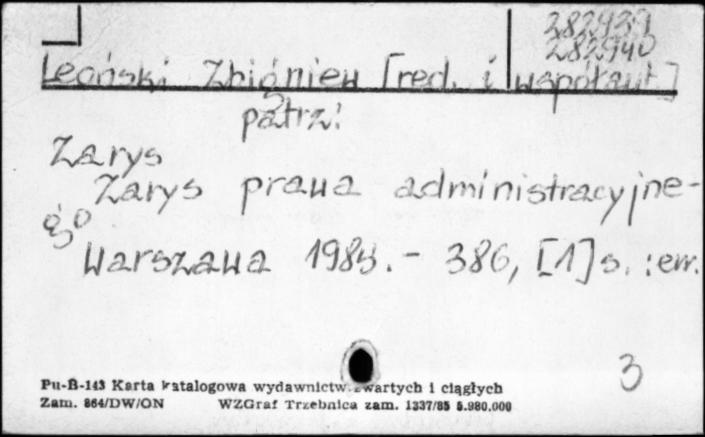 282939
282940
Leoński Zbigniew [red. i współaut.]
patrz:
Zarys
Zarys prawa administracyjne-
go
Warszawa 1984. - 386, [1] s. : err.
3
Pu-B-143 Karta katalogowa wydawnictw zwartych i ciągłych
Zam. 864/DW/ON WZGraf Trzebnica zam. 1337/85 5.980.000